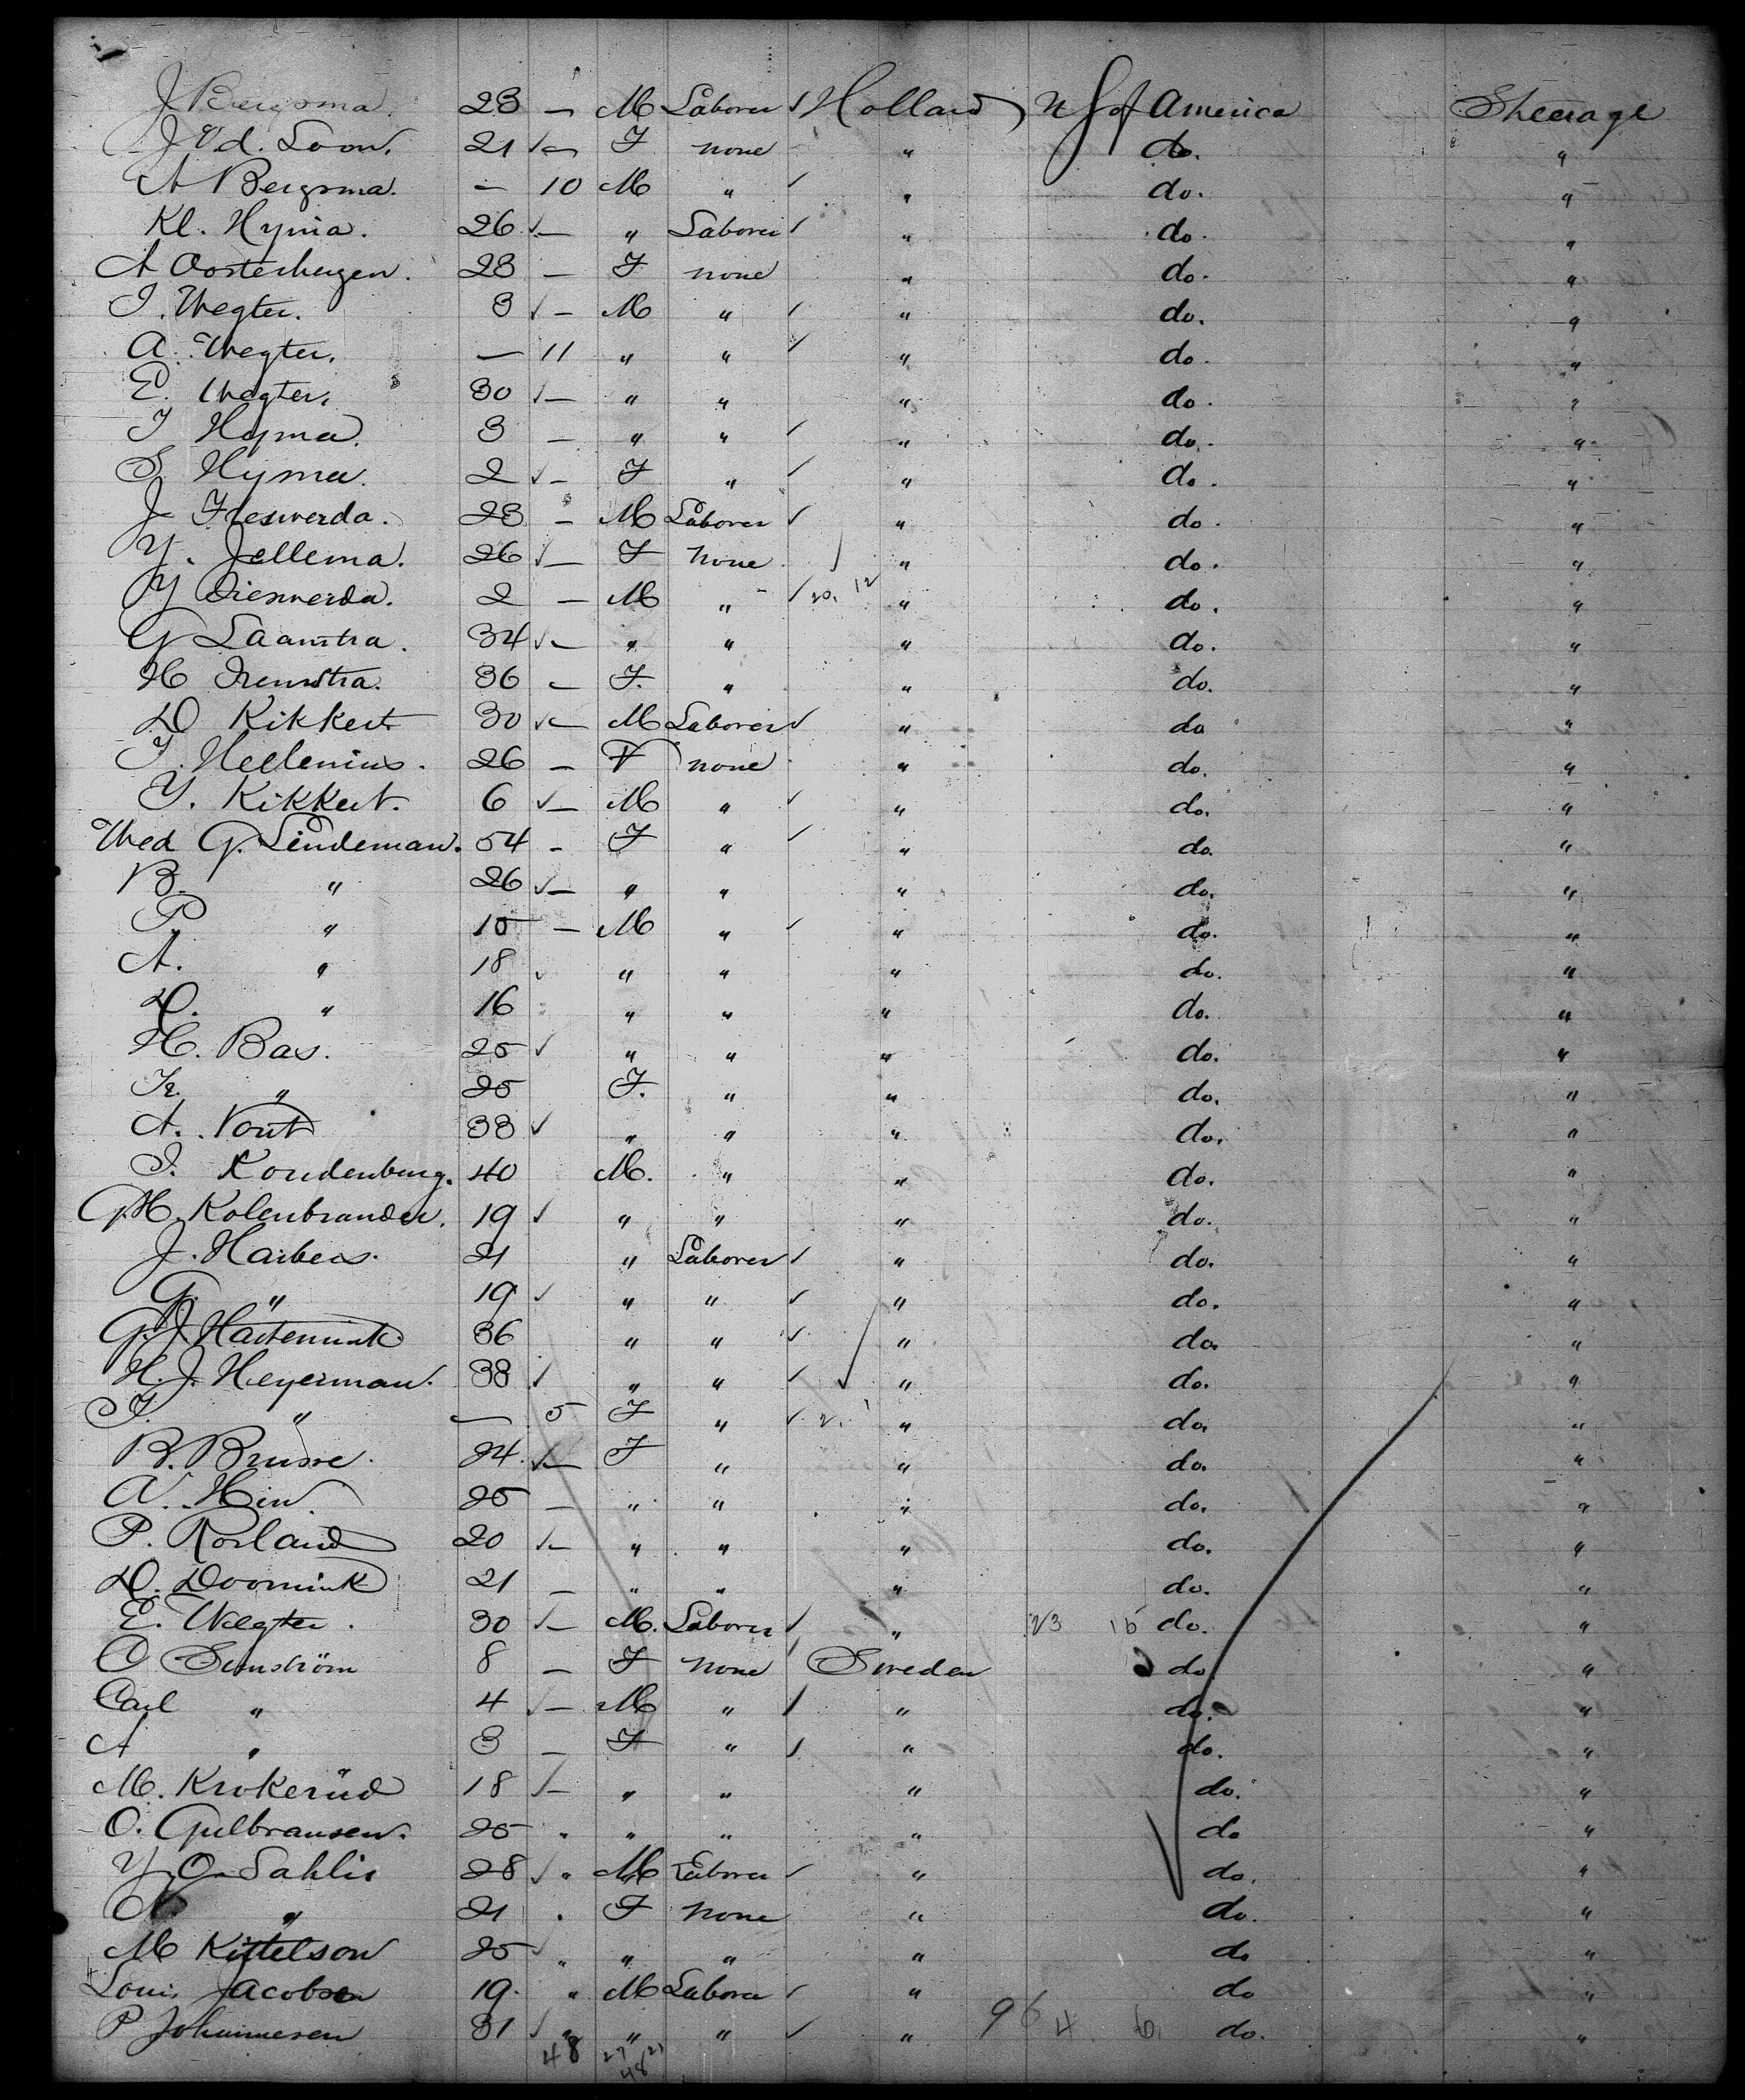 J Bergsma. 23 — M Laborer ✓ Holland U S of America Steerage
J Vd. Loon. 21 ✓ — F none " do. "
A Bergsma. — 10 M " ✓ " do. "
Kl. Hyma. 26 ✓ — " Laborer ✓ " do. "
A Oosterhuzen. 23 — F none " do. "
I. Wegter. 3 ✓ — M " ✓ " do. "
A. Wegter. — 11 " " ✓ " do. "
E. Wegter. 30 ✓ — " " " do. "
I Hyma. 3 — " " ✓ " do. "
S Hyma. 2 ✓ — F " ✓ " do. "
J Frieswerda. 23 — M Laborer ✓ " do. "
Y. Jellema. 26 ✓ — F none " do. "
Y Frieswerda. 2 — M " ✓ 20. 12 " do. "
G Laanstra. 34 ✓ — " " " do. "
H 36 — F. " " do. "
D Kikkert 30 ✓ — M Laborer ✓ " do "
T. Hellenius. 26 — F none " do. "
Y. Kikkert. 6 ✓ — M " ✓ " do. "
Wed G. Lindeman. 54 — F " ✓ " do. "
B. " 26 ✓ — " " " do. "
P. " 15 — M " ✓ " do. "
A. " 18 ✓ " " " do. "
D. " 16 " " " do. "
H. Bas. 25 ✓ " " " do. "
Tr. " 25 F. " " do. "
A. Vont 33 ✓ " " " do. "
I. Koudenburg. 40 M. " " do. "
G.H. Kolenbrander. 19 ✓ " " " do. "
J. Harbers. 21 " Laborer ✓ " do. "
G. " 19 ✓ " " ✓ " do. "
G.J. Hartemink. 36 " " ✓ " do. "
H.J. Heyerman. 38 ✓ " " ✓ " do. "
T. " — 5 F " ✓ 2. 1 " do. "
B. Brusse. 24. ✓ — F " " do. "
A. Hin. 25 — " " " do. "
P. Rosland 20 ✓ — " " " do. "
D. Doornink 21 — " " " do. "
E. Wegter. 30 ✓ — M. Laborer ✓ " 23 15 do. "
O 8 — F none Sweden do. "
Carl " 4 ✓ — M " ✓ " do. "
A " 3 — F " ✓ " do. "
M. Krokerüd 18 ✓ — " " " do. "
O. Gulbransen. 25 " " " " do "
Y. O. Sahlis 28 ✓ " M Laborer ✓ " do. "
" 21 " F none " do. "
M Kittelson 25 ✓ " " " " do "
Louis Jacobsen 19. " M Laborer ✓ " do "
P Johannesen 31 ✓ " " " ✓ " 96 4 6 do. "
48 27 21
48